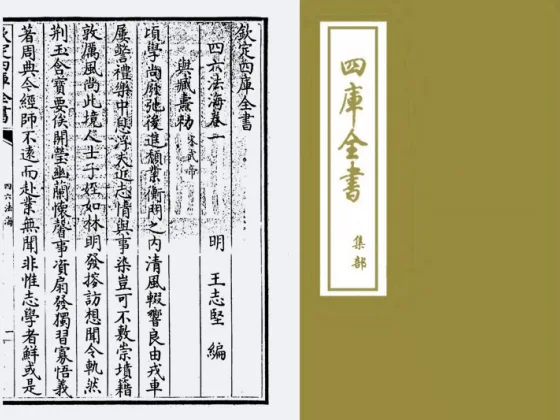 四庫全書
集部
欽定四庫全書
四六法海卷一 明 王志堅 編
與臧燾勅 宋武帝
頃學尚廢弛後進頹業衡門之内清風輟響良由戎車
屢警禮樂中息浮夫近志情與事染豈可不敷崇墳籍
敦厲風尚此境人士子姪如林明發搜訪想聞令軌然
荆玉含寶要俟開瑩幽蘭懷馨事資扇發獨習寡悟義
著周典今經師不遠而赴業無聞非惟志學者鮮或是
欽定四庫全書
四六法海
一